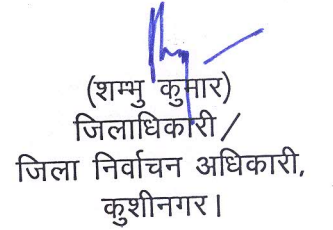 (शम्भु कुमार)
जिलाधिकारी /
जिला निर्वाचन अधिकारी,
कुशीनगर।